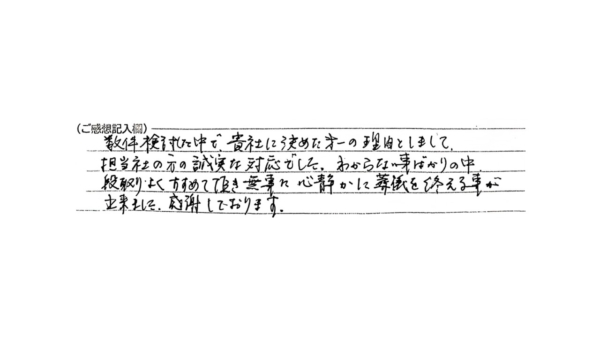 (ご感想記入欄)
数件検討した中で、貴社に決めた才一の理由としまして、
担当社の方の誠実な対応でした。わからない事ばかりの中
段取りよくすすめて頂き無事に心静かに葬儀を終える事が
出来ました。感謝しております。